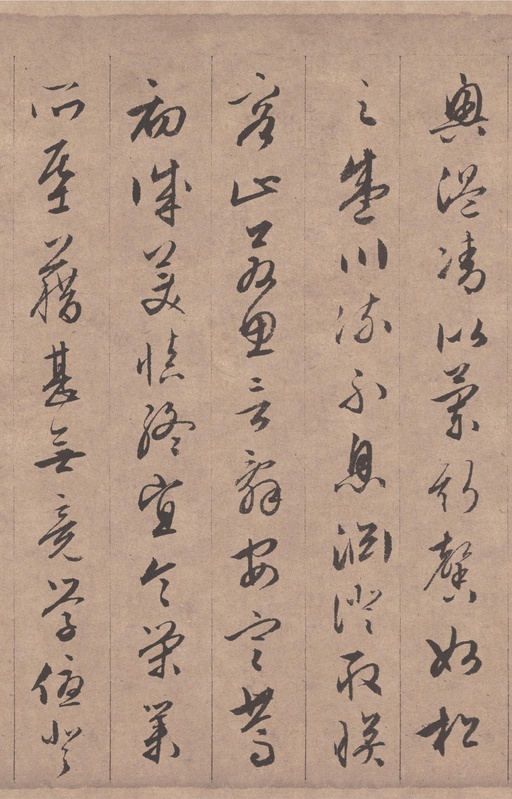 興溫凊似蘭斯馨如松
之盛川流不息淵澄取映
容止若思言辭安定篤
初誠美慎終宜令榮業
所基藉甚無竟學優登